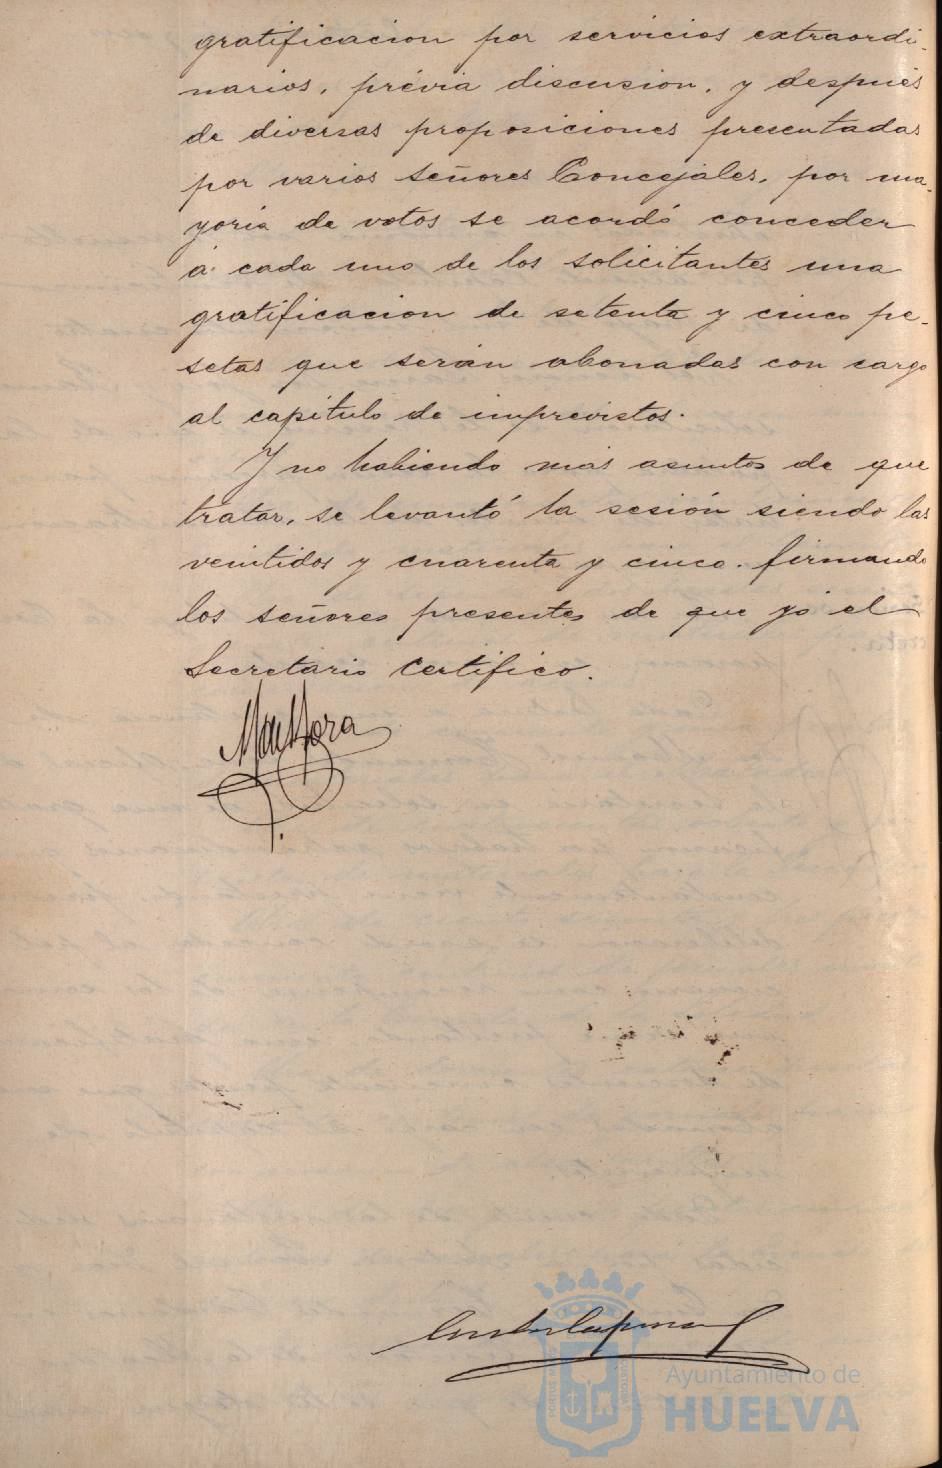 gratificacion por servicios extraordi-
narios, prévia discusion, y después
de diversas proposiciones presentadas
por varios señores Concejales, por ma-
yoria de votos se acordó conceder
á cada uno de los solicitantes una
gratificacion de setenta y cinco pe-
setas que serán abonadas con cargo
al capítulo de imprevistos.
Y no habiendo más asuntos de que
tratar, se levantó la sesión siendo las
veintidos y cuarenta y cinco. firmando
los señores presentes de que yó el
Secretario Certifico.
Ayuntamiento de
HUELVA